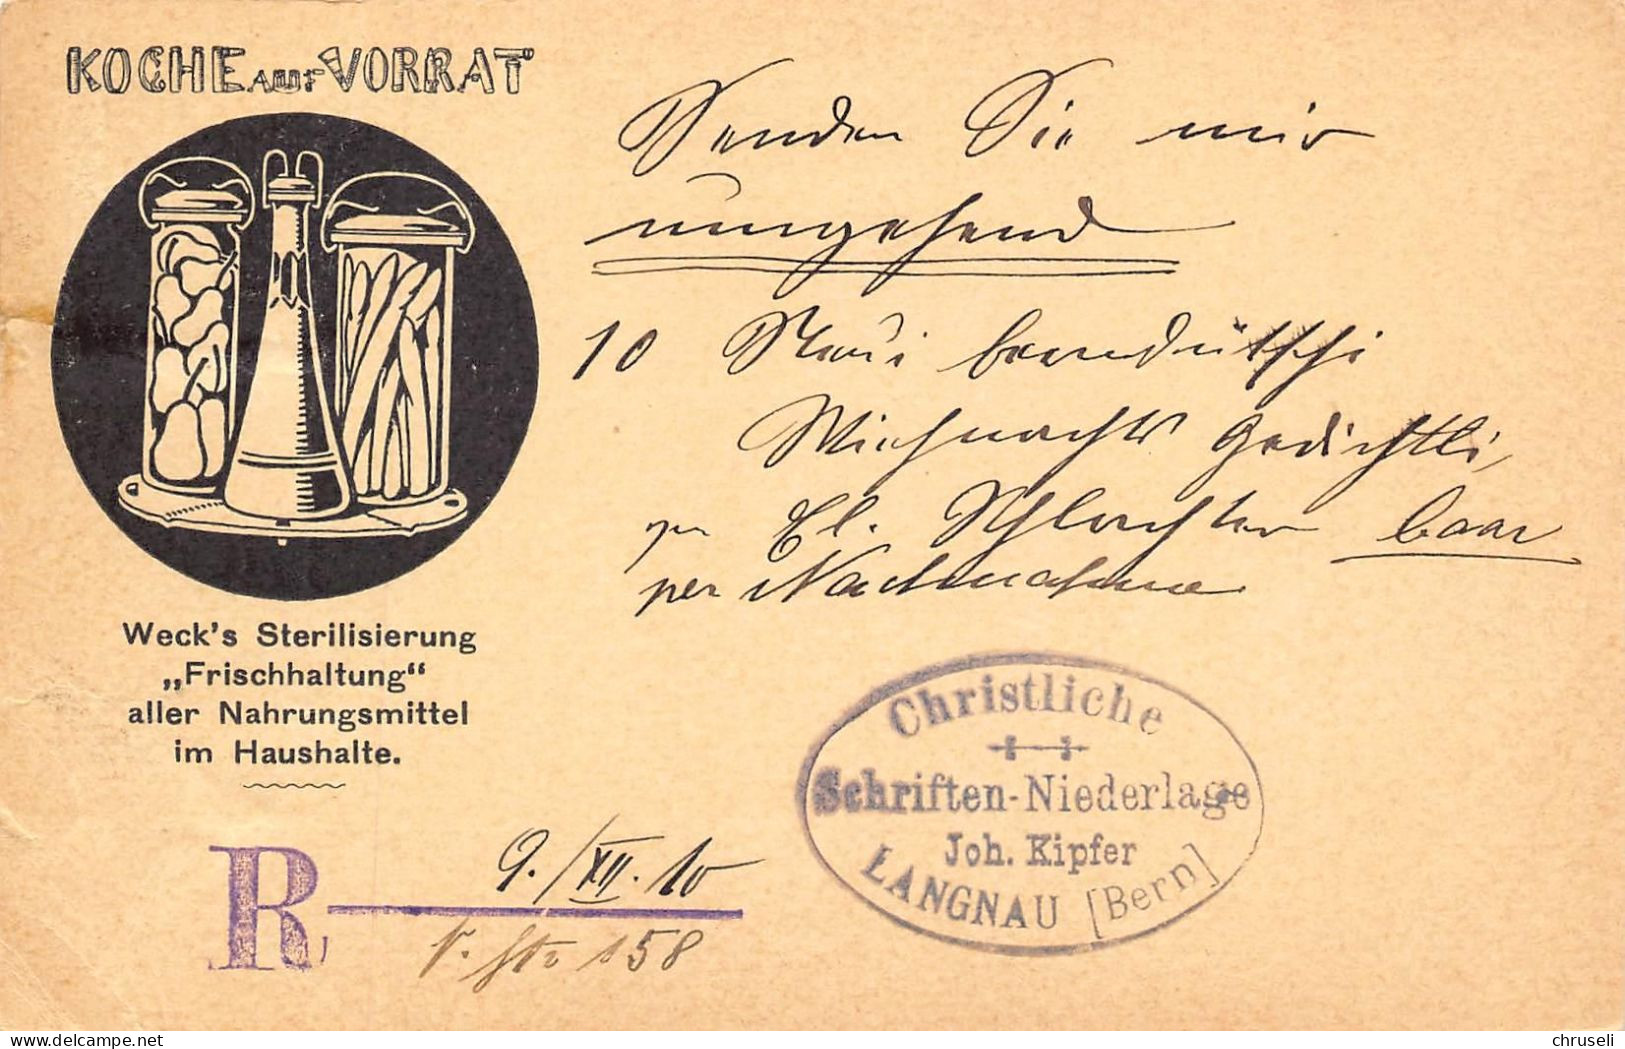 KOCHE AUF VORRAT
Senden Sie mir
umgehend
10 Neui bärndütschi
Wiehnachts Gedichtli,
von El. Schlachter baar
per Nachnahme
Weck's Sterilisierung
„Frischhaltung“
aller Nahrungsmittel
im Haushalte.
Christliche
Schriften-Niederlage
Joh. Kipfer
LANGNAU [Bern]
R
9./XII. 10
158
delcampe.net
chruseli